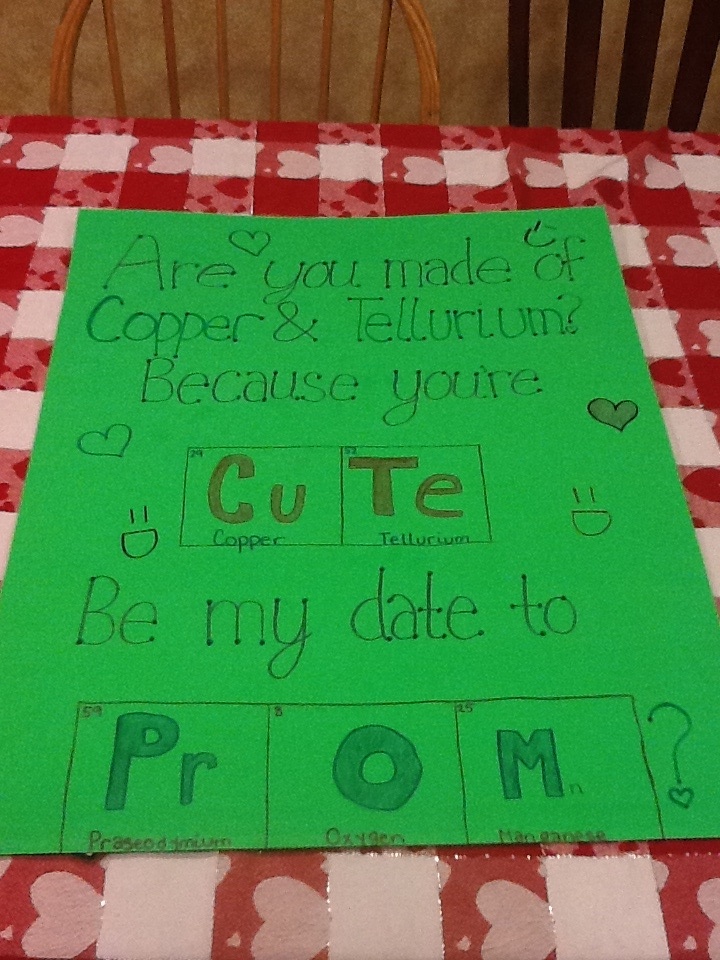 Are you made of
Copper & Tellurium?
Because you're
29 52
Cu Te
Copper Tellurium
Be my date to
59 8 25
Pr O Mn ?
Praseodymium Oxygen Manganese